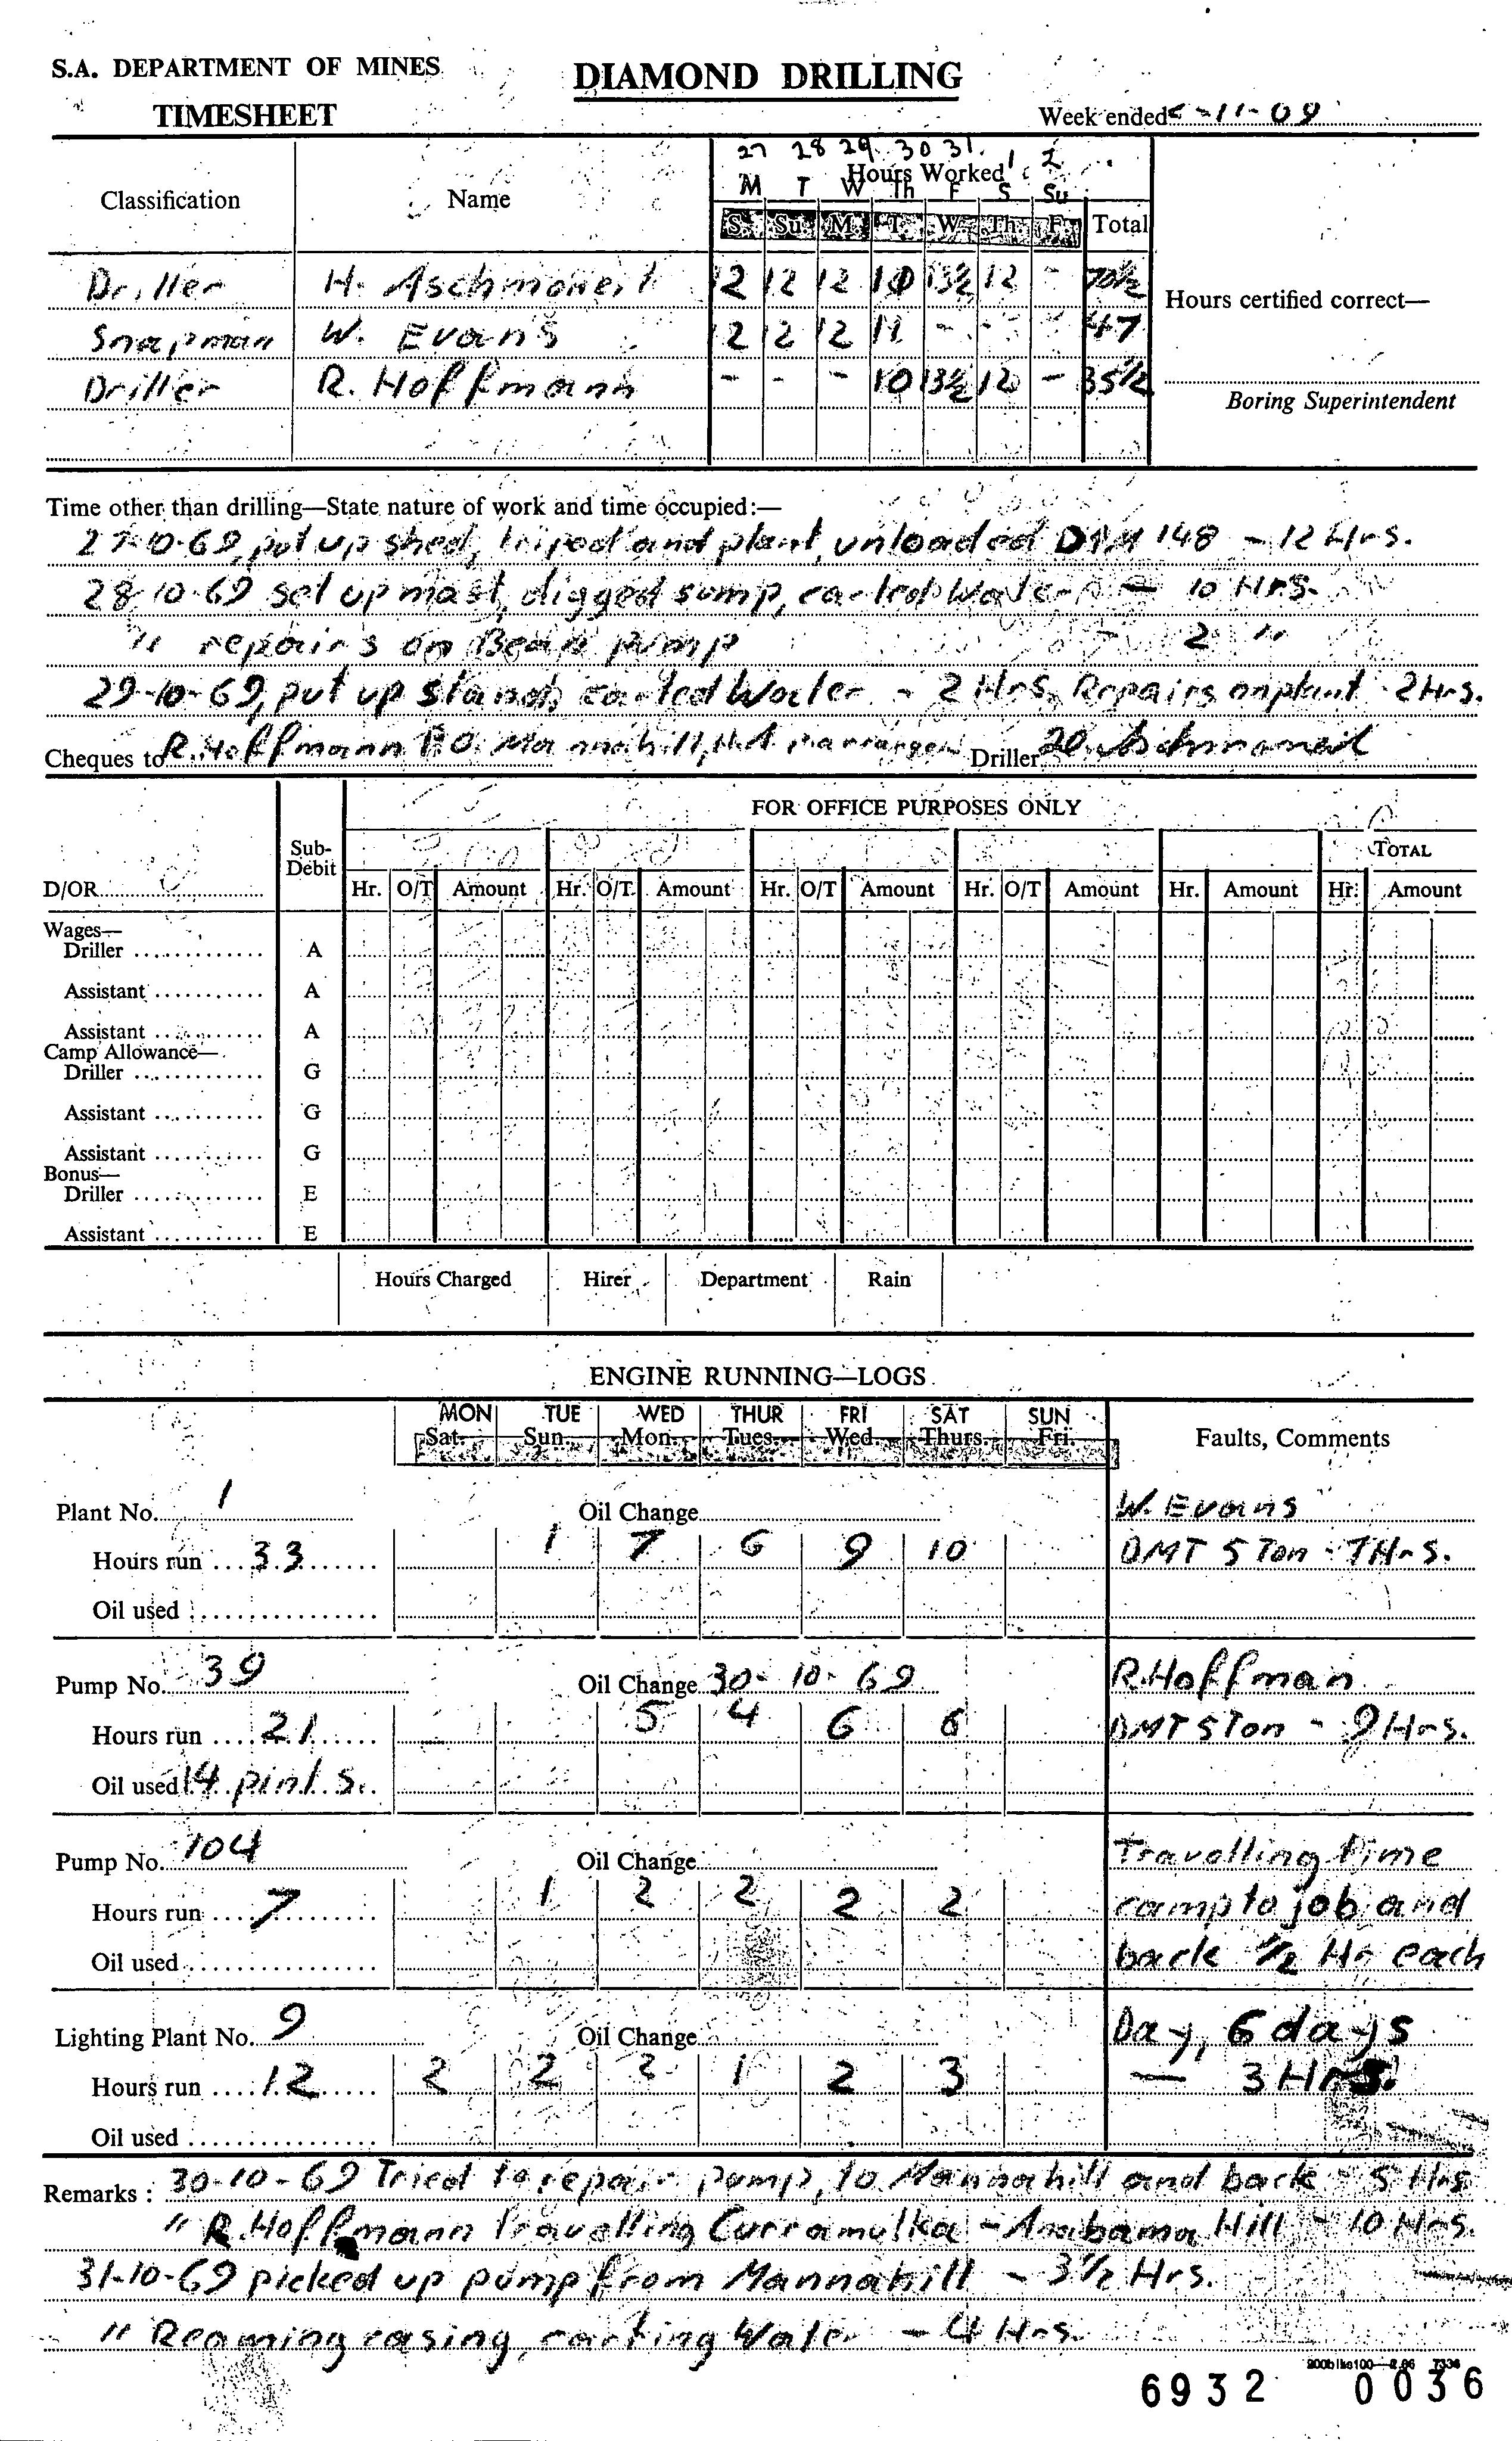 S.A. DEPARTMENT OF MINES
DIAMOND DRILLING
TIMESHEET
Week ended -11-69
27 28 29 30 31 1 2
Hours Worked
M T W Th F S Su
Classification Name S. Su M T. W Th F Total
Driller H. Aschmoneit 12 12 12 10 13½ 12 - 70½
Hours certified correct—
Snapman W. Evans 12 12 12 11 - - 47
Driller R. Hoffmann - - - 10 13½ 12 - 35½
Boring Superintendent
Time other than drilling—State nature of work and time occupied:—
27-10-69, put up shed, tripod and plant, unloaded 148 - 12 Hrs.
28-10-69 set up mast, digged sump, carted Water - 10 Hrs.
" repairs on Bean pump 2 "
29-10-69, put up stand, carted Water - 2 Hrs, Repairs on plant 2 Hrs.
Cheques to R. Hoffmann P.O. Mannahill, Driller Aschmoneit
FOR OFFICE PURPOSES ONLY
Sub-Debit
TOTAL
D/OR
Hr. O/T Amount Hr. O/T. Amount Hr. O/T Amount Hr. O/T Amount Hr. Amount Hr. Amount
Wages—
Driller A
Assistant A
Assistant A
Camp Allowance—
Driller G
Assistant G
Assistant G
Bonus—
Driller E
Assistant E
Hours Charged Hirer Department Rain
ENGINE RUNNING—LOGS
MON TUE WED THUR FRI SAT SUN
Sat. Sun. Mon. Tues. Wed. Thurs. Fri. Faults, Comments
Plant No. 1 Oil Change W. Evans
Hours run 33 1 7 6 9 10 DMT 5 Ton - 7 Hrs.
Oil used
Pump No. 39 Oil Change 30-10-69 R. Hoffman
Hours run 21 5 4 6 6 DMT 5 Ton - 9 Hrs.
Oil used 14 pints.
Pump No. 104 Oil Change Travelling time
Hours run 7 1 2 2 2 2 camp to job and
Oil used back ½ Hr each
Lighting Plant No. 9 Oil Change Day, 6 days
Hours run 12 2 2 2 1 2 3 — 3 Hrs.
Oil used
Remarks: 30-10-69 Tried to repair pump, to Mannahill and back - 5 Hrs
" R. Hoffmann travelling Curramulka - Anabama Hill - 10 Hrs.
31-10-69 picked up pump from Mannahill - 3½ Hrs.
" Reaming casing, carting Water - 4 Hrs.
6932 0036